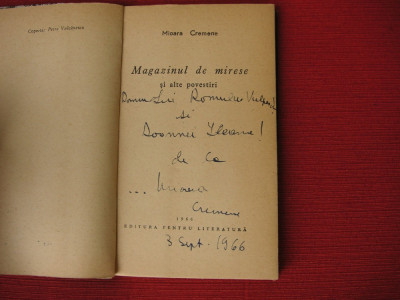 Coperta: Petre Vulcănescu
Mioara Cremene
Magazinul de mirese
și alte povestiri
Domnului Romulus
și
Doamnei Ileana!
de la
... Mioara
Cremene
1966
EDITURA PENTRU LITERATURĂ
3. Sept. 1966